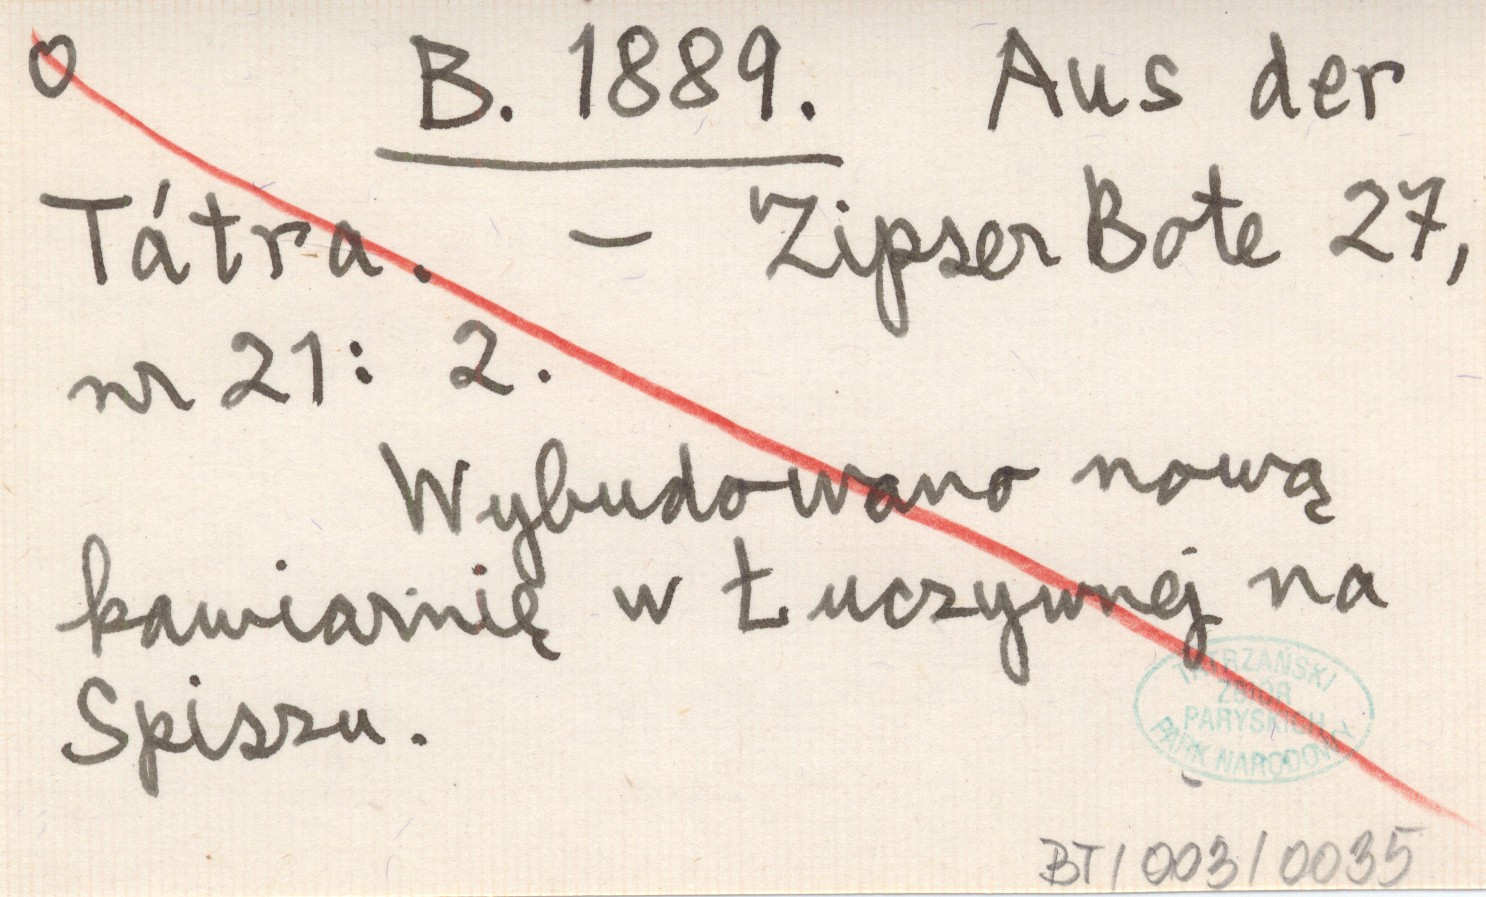 O B. 1889. Aus der
Tátra. — Zipser Bote 27,
nr 21: 2.
Wybudowano nową
kawiarnię w Łuczywnej na
Spiszu.
TATRZAŃSKI
ZBIÓR
PARYSKICH
PARK NARODOWY
BT/003/0035